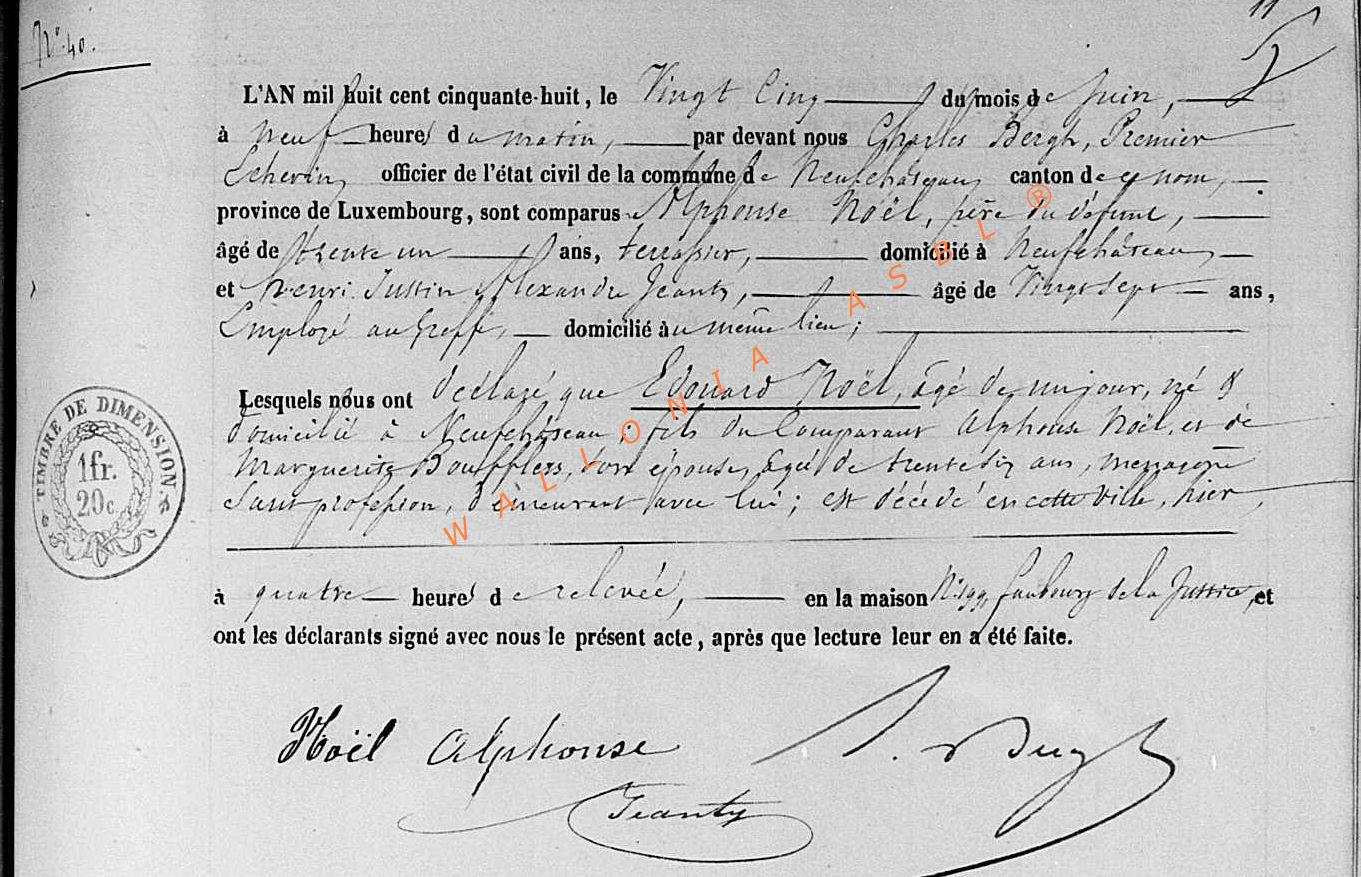 N° 40.
11
L'AN mil huit cent cinquante-huit, le Vingt Cinq du mois de Juin,
à neuf heures du matin, par devant nous Charles Bergh, Premier
Echevin, officier de l'état civil de la commune de Neufchâteau, canton de ce nom,
province de Luxembourg, sont comparus Alphonse Noël, père du défunt,
âgé de trente un ans, terrassier, domicilié à Neufchâteau,
et Henri Justin Alexandre Jeanty, âgé de Vingt Sept ans,
Employé au Greffe, domicilié au même lieu;
Lesquels nous ont déclaré que Edouard Noël, âgé de un jour, né &
domicilié à Neufchâteau; fils du Comparant Alphonse Noël, et de
Marguerite Boufflers, son épouse, âgée de trente six ans, menagère
Sans profession, demeurant avec lui; est décédé en cette Ville, hier,
à quatre heures de relevée, en la maison N° 199, faubourg de la Justice, et
ont les déclarants signé avec nous le présent acte, après que lecture leur en a été faite.
TIMBRE DE DIMENSION
1fr.
20c
Noël Alphonse
Jeanty
WALLONIA ASBL ®